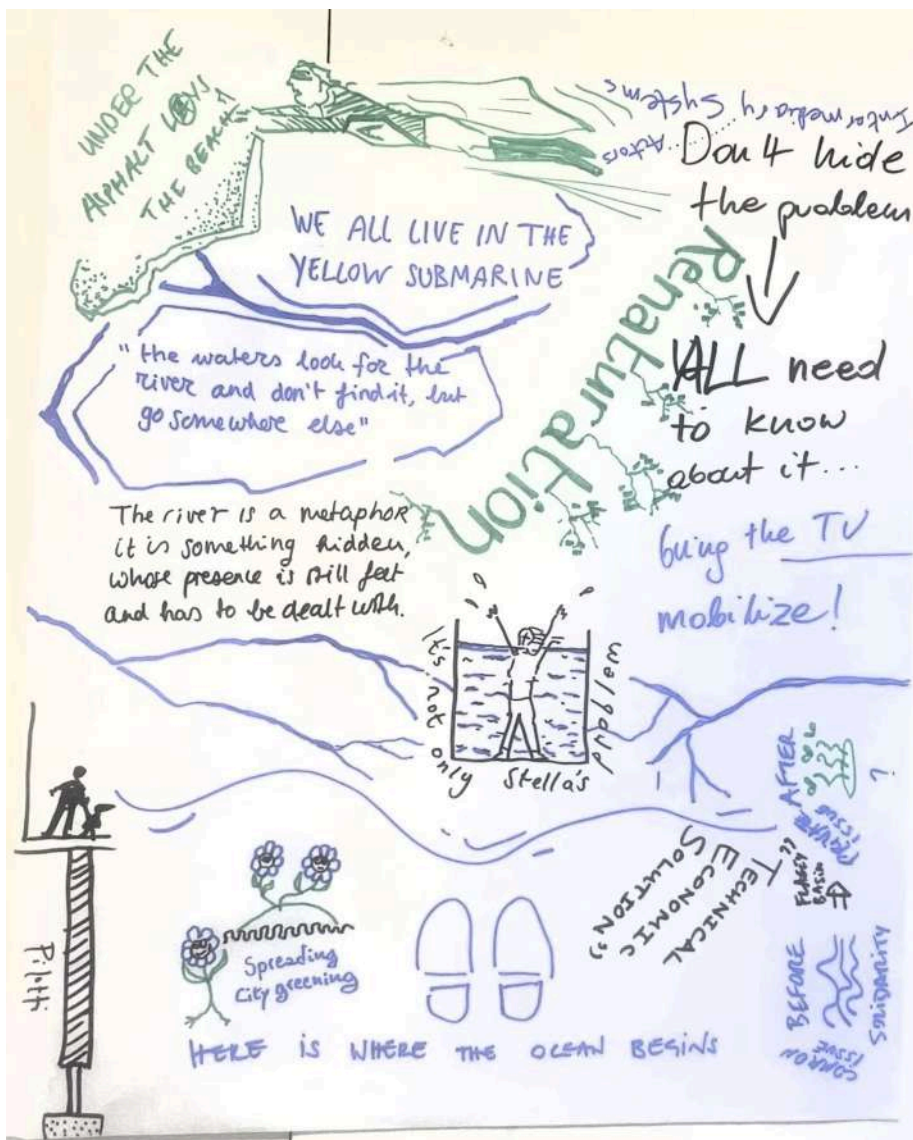 UNDER THE
ASPHALT LAYS
THE BEACH!
Intermediary Systems
Actors
Don't hide
the problem
WE ALL LIVE IN THE
YELLOW SUBMARINE
Renaturation
ALL need
to know
about it...
"the waters look for the
river and don't find it, but
go somewhere else"
The river is a metaphor
it is something hidden,
whose presence is still felt
and has to be dealt with.
bring the TV
mobilize!
It's not only Stella's problem
AFTER
?
PRIVATE
ISSUE
"TECHNICAL
ECONOMIC
SOLUTION"
FLAGEY
BASIN
BEFORE
SOLIDARITY
COMMON
ISSUE
Pilotti
Spreading
City greening
HERE IS WHERE THE OCEAN BEGINS